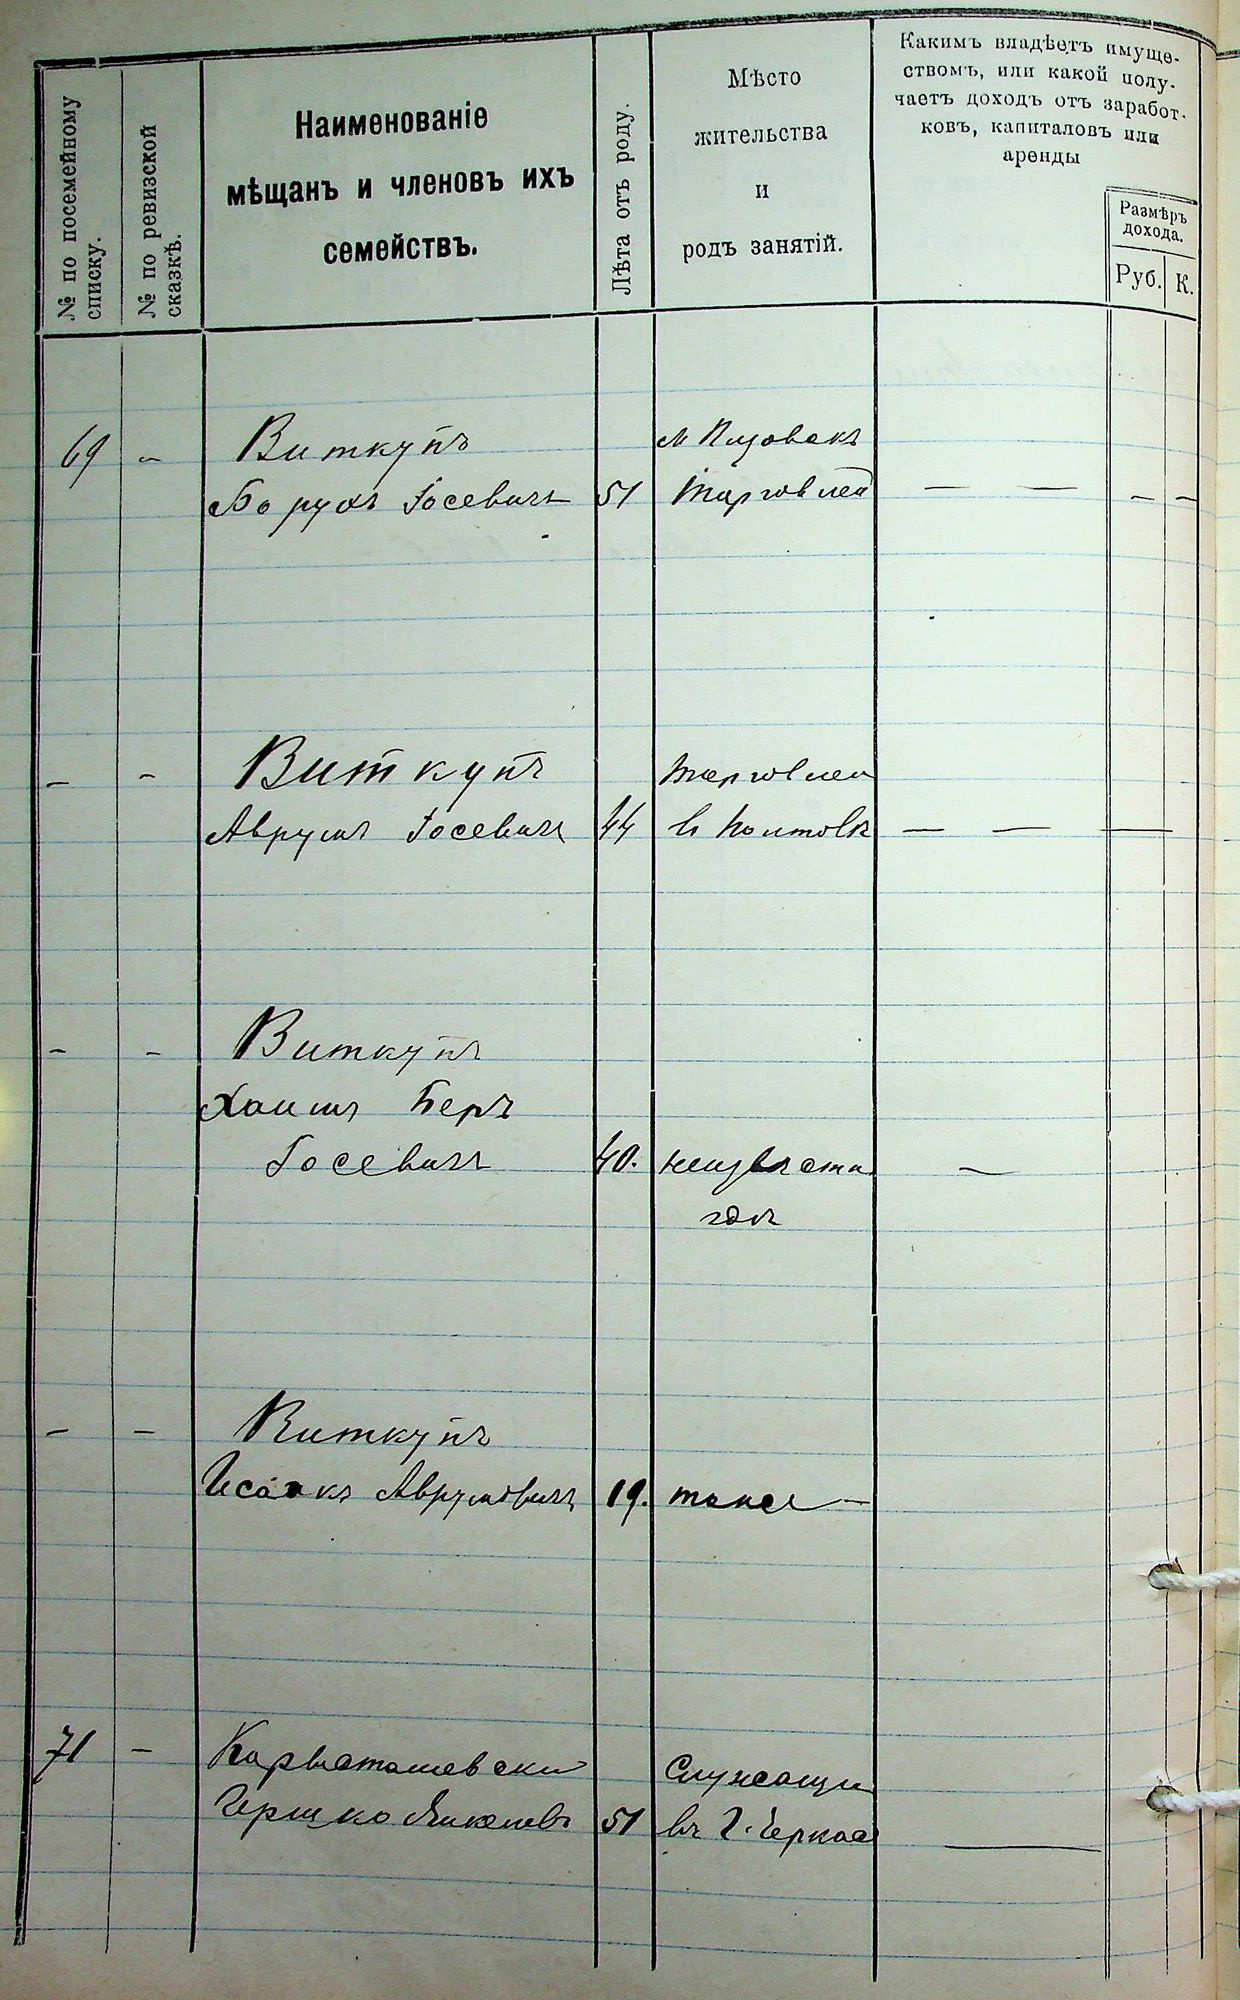 № по посемейному
списку.
№ по ревизской
сказкѣ.
Наименованіе
мѣщанъ и членовъ ихъ
семействъ.
Лѣта отъ роду.
Мѣсто
жительства
и
родъ занятій.
Какимъ владѣетъ имуще-
ствомъ, или какой полу-
чаетъ доходъ отъ заработ-
ковъ, капиталовъ или
аренды
Размѣръ
дохода.
Руб.
К.
69 – Виткупъ
Борухъ Іосевичъ 51 Торговлей — — – –
– – Виткупъ Торговлей
Аврумъ Іосевичъ 44 — — —
– – Виткупъ
Хаимъ Беръ
Іосевичъ 40. неизвѣстно –
гдѣ
– – Виткупъ
Исаакъ Аврумовичъ 19. тоже —
71 – Служащи
Гершко 51 въ Г. Черкас —